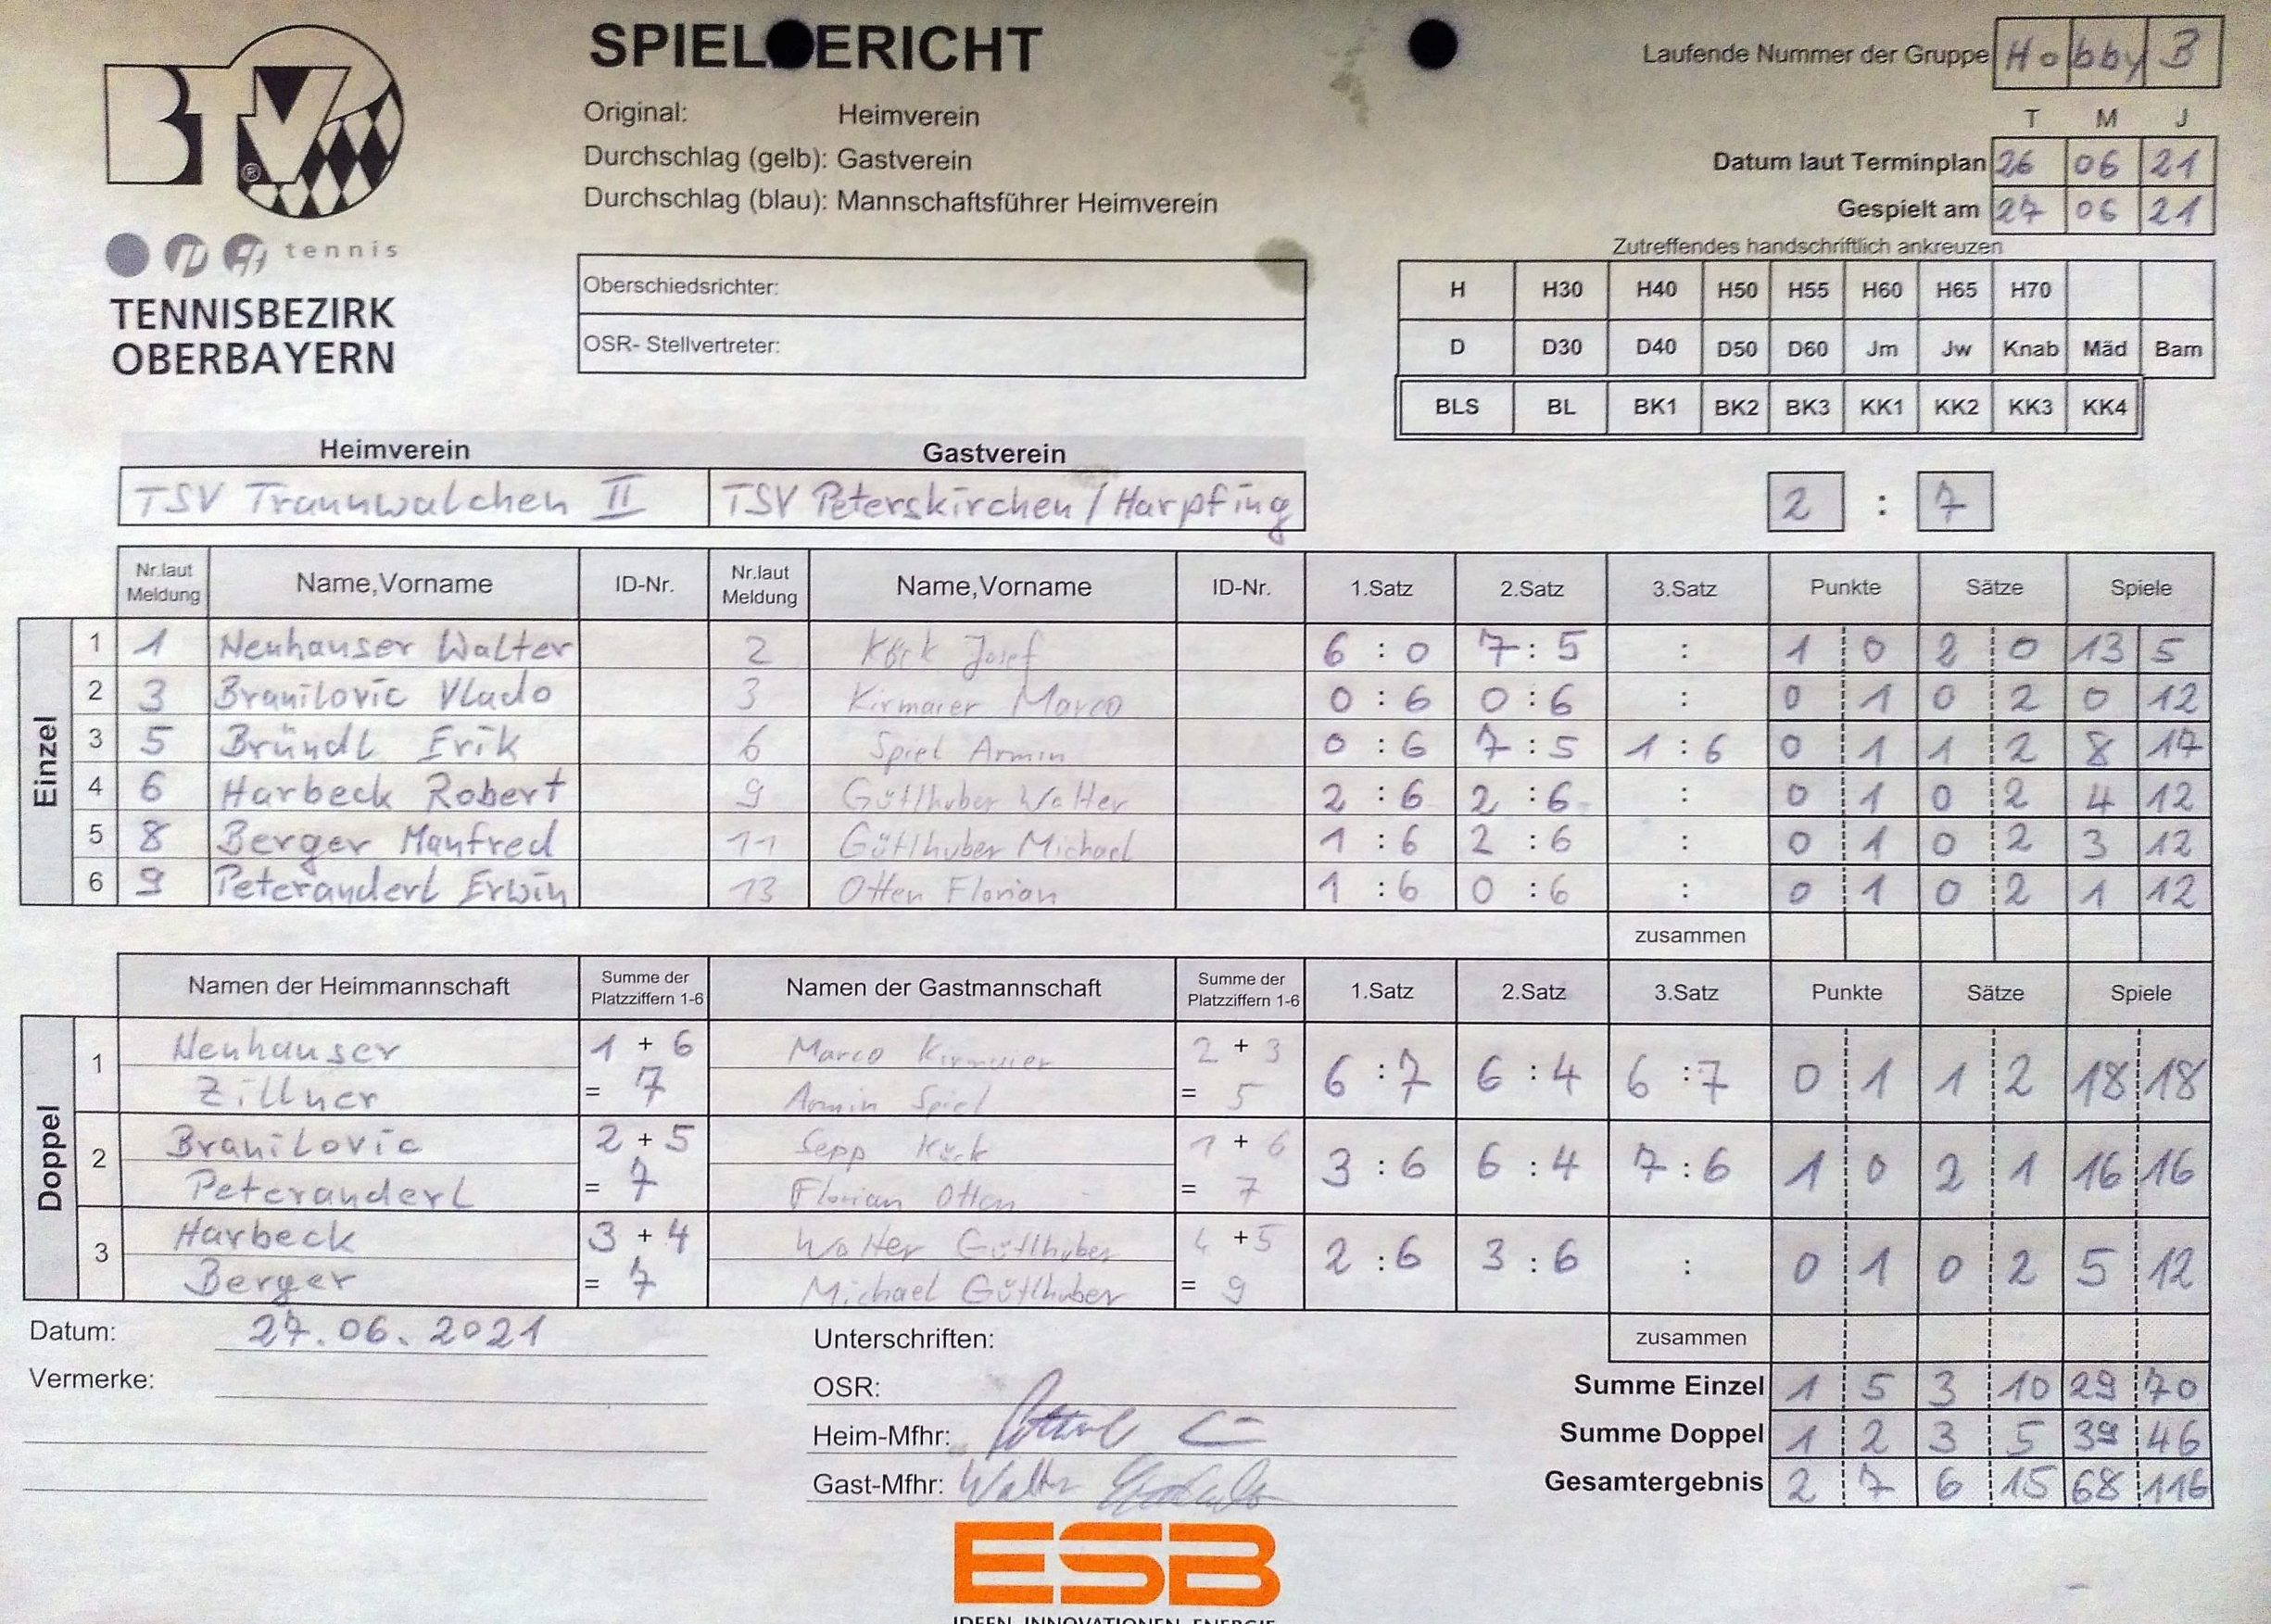 SPIEL ERICHT
Laufende Nummer der Gruppe Hobby B
BTV ®
Original: Heimverein
T M J
Durchschlag (gelb): Gastverein
Datum laut Terminplan 26 06 21
Durchschlag (blau): Mannschaftsführer Heimverein
Gespielt am 27 06 21
tennis
Zutreffendes handschriftlich ankreuzen
Oberschiedsrichter:
H H30 H40 H50 H55 H60 H65 H70
TENNISBEZIRK
OBERBAYERN
OSR- Stellvertreter:
D D30 D40 D50 D60 Jm Jw Knab Mäd Bam
BLS BL BK1 BK2 BK3 KK1 KK2 KK3 KK4
Heimverein Gastverein
TSV Traunwalchen II TSV Peterskirchen / Harpfing 2 : 7
Nr.laut Meldung Name,Vorname ID-Nr. Nr.laut Meldung Name,Vorname ID-Nr. 1.Satz 2.Satz 3.Satz Punkte Sätze Spiele
Einzel
1 1 Neuhauser Walter 2 Köck Josef 6 : 0 7 : 5 : 1 0 2 0 13 5
2 3 Branilovic Vlado 3 Kirmaier Marco 0 : 6 0 : 6 : 0 1 0 2 0 12
3 5 Bründl Erik 6 Spiel Armin 0 : 6 7 : 5 1 : 6 0 1 1 2 8 17
4 6 Harbeck Robert 9 Gütlhuber Walter 2 : 6 2 : 6 : 0 1 0 2 4 12
5 8 Berger Manfred 11 Gütlhuber Michael 1 : 6 2 : 6 : 0 1 0 2 3 12
6 9 Peteranderl Erwin 13 Otten Florian 1 : 6 0 : 6 : 0 1 0 2 1 12
zusammen
Namen der Heimmannschaft Summe der Platzziffern 1-6 Namen der Gastmannschaft Summe der Platzziffern 1-6 1.Satz 2.Satz 3.Satz Punkte Sätze Spiele
Doppel
1 Neuhauser 1 + 6 Marco Kirmaier 2 + 3 6 : 7 6 : 4 6 : 7 0 1 1 2 18 18
Zillner = 7 Armin Spiel = 5
2 Branilovic 2 + 5 Sepp Köck 1 + 6 3 : 6 6 : 4 7 : 6 1 0 2 1 16 16
Peteranderl = 7 Florian Otten = 7
3 Harbeck 3 + 4 Walter Gütlhuber 4 + 5 2 : 6 3 : 6 : 0 1 0 2 5 12
Berger = 7 Michael Gütlhuber = 9
Datum: 27.06.2021 Unterschriften: zusammen
Vermerke: OSR: Summe Einzel 1 5 3 10 29 70
Heim-Mfhr: Summe Doppel 1 2 3 5 39 46
Gast-Mfhr: Walter Gesamtergebnis 2 7 6 15 68 116
ESB
IDEEN. INNOVATIONEN. ENERGIE.